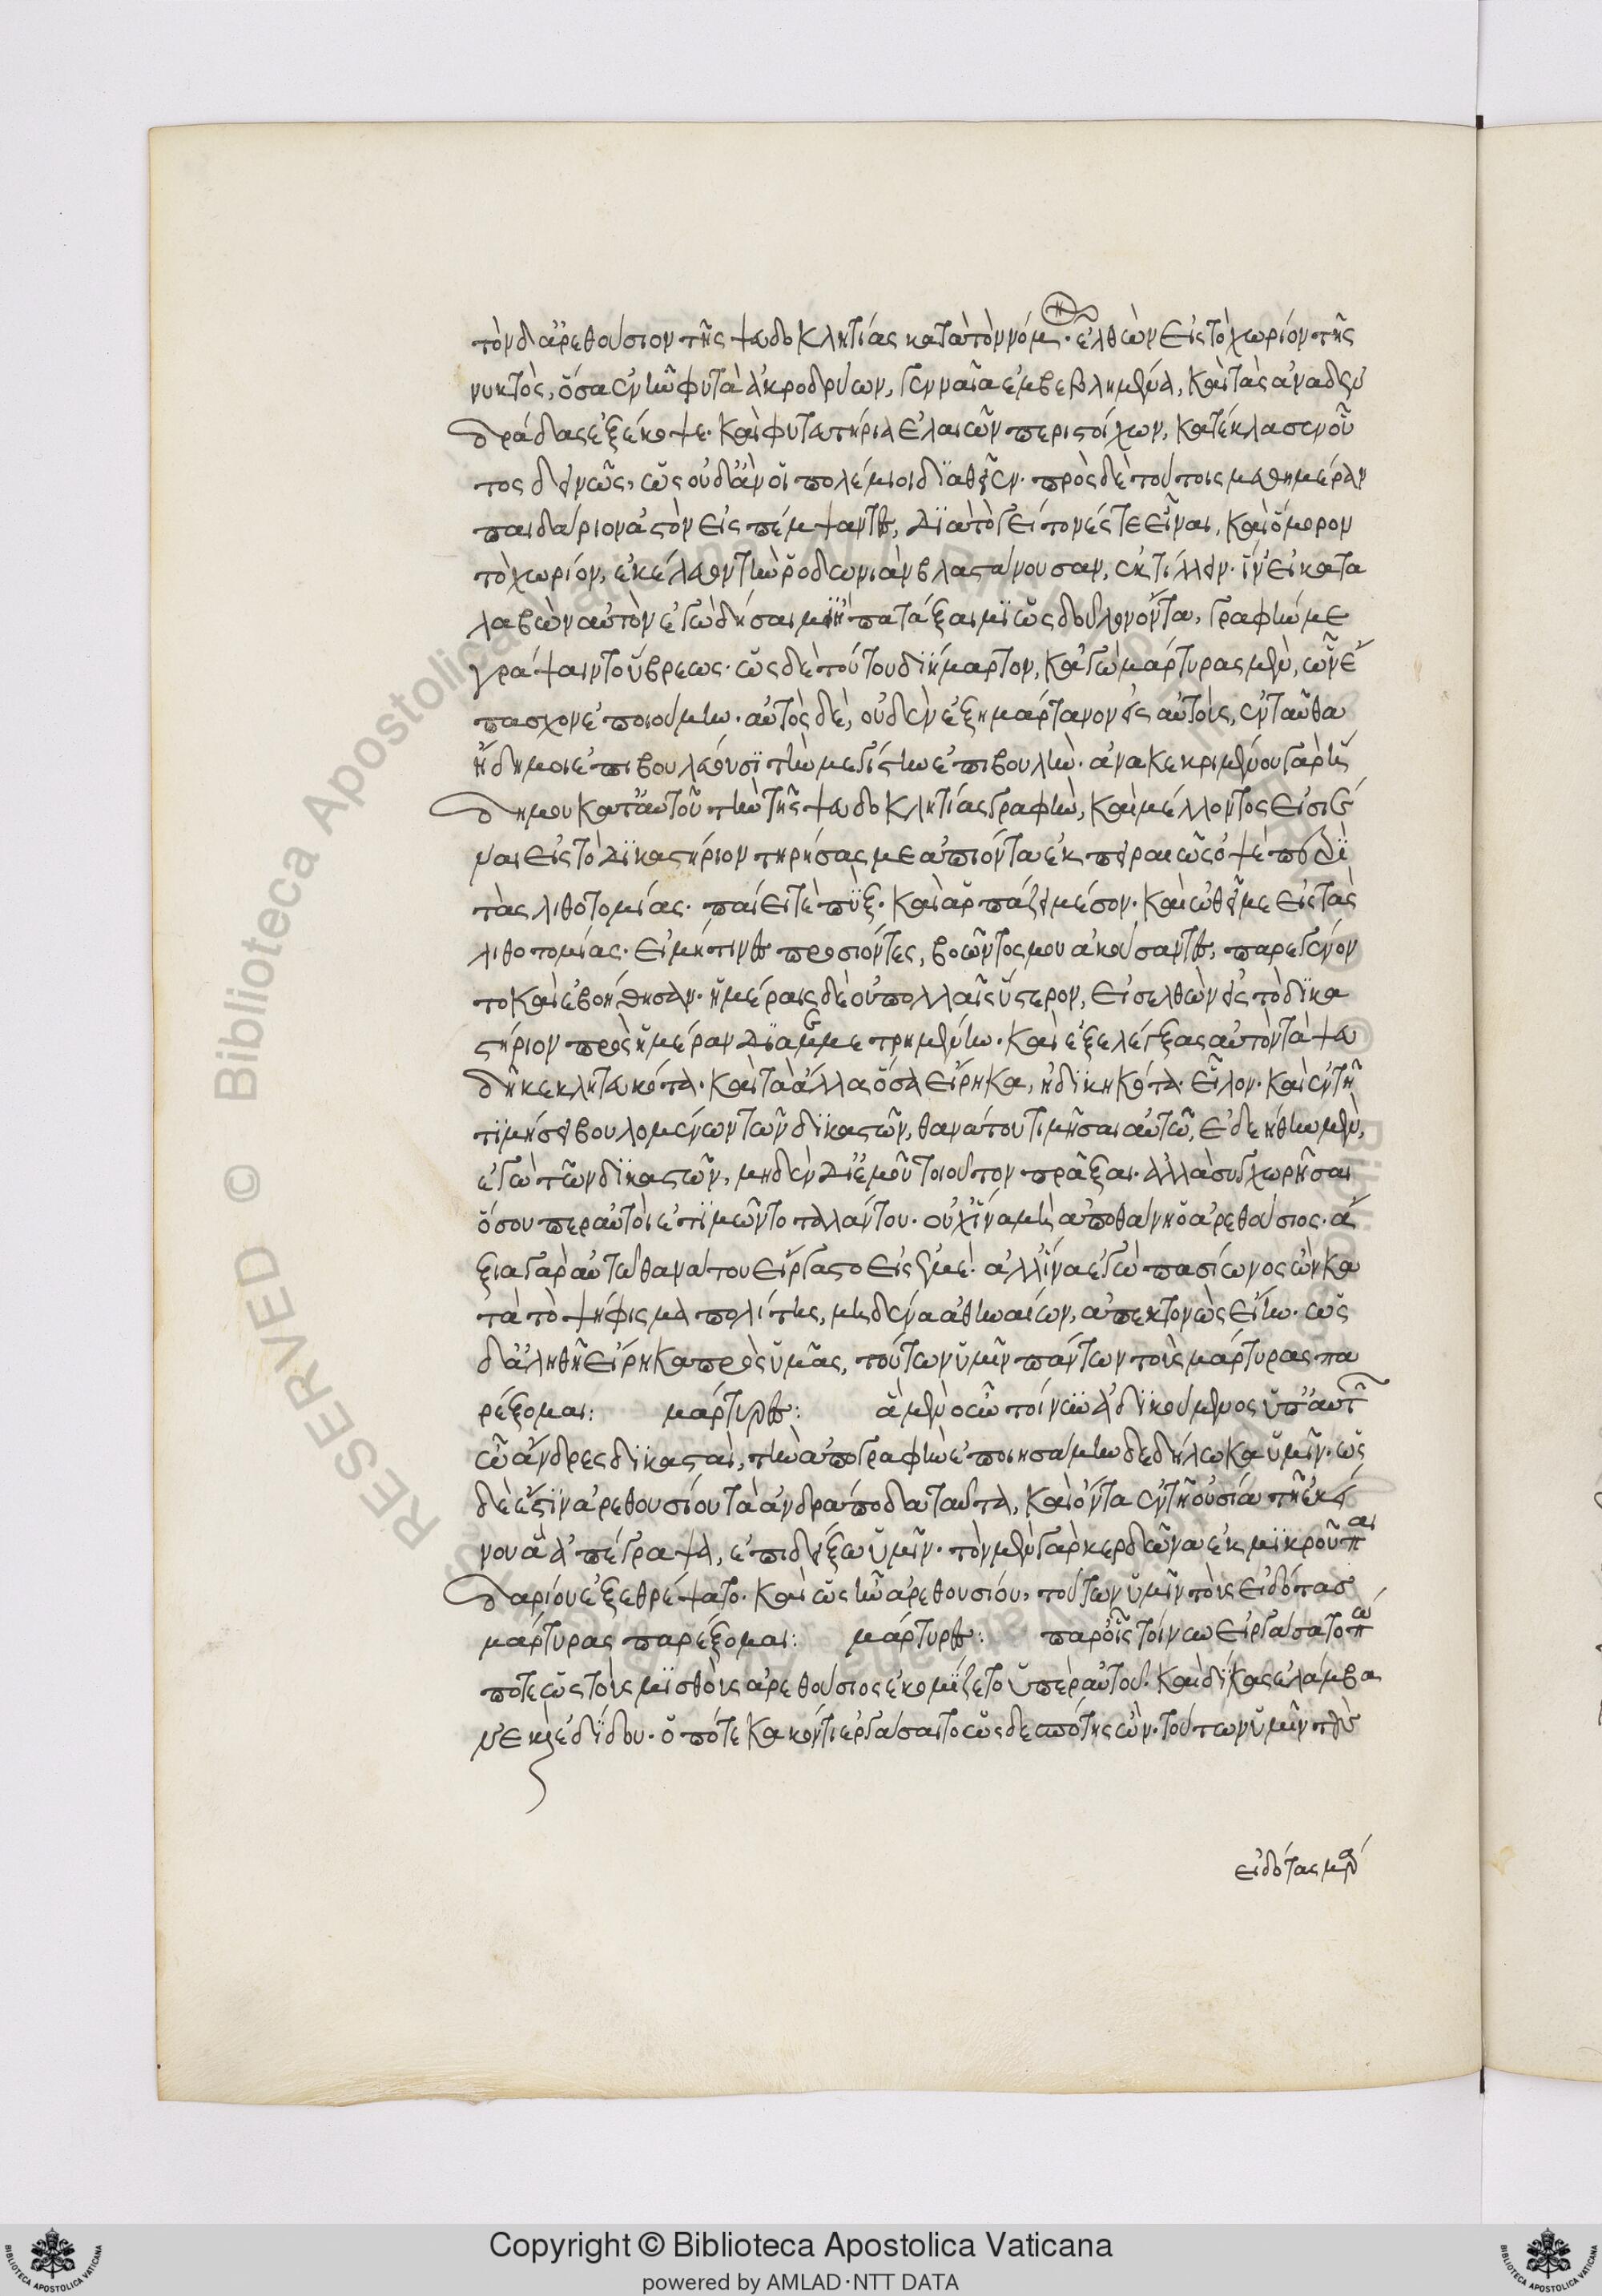 τὸν δ' ἀρεθούσιον τῆς ψευδοκλητίας κατὰ τὸν νόμον· ἐλθὼν εἰς τὸ χωρίον τῆς
νυκτὸς, ὅσα ἐνῆν φυτὰ ἀκροδρύων, γενναῖα ἐμβεβλημένα, καὶ τὰς ἀναδεν
δράδας ἐξέκοψε· καὶ φυτευτήρια ἐλαιῶν περιστοίχων, κατέκλασεν οὕ
τως δεινῶς, ὡς οὐδ' ἂν οἱ πολέμιοι διαθεῖεν· πρὸς δὲ τούτοις μεθημέραν
παιδάριον ἀστὸν εἰσπέμψαντες, διὰ τὸ γείτονές τε εἶναι, καὶ ὅμορον
τὸ χωρίον, ἐκέλευον τὴν ῥοδωνιὰν βλαστάνουσαν, ἐκτίλλειν· ἵν' εἰ κατα
λαβὼν αὐτὸν ἐγὼ δήσαιμι ἢ πατάξαιμι ὡς δοῦλον ὄντα, γραφήν με
γράψαιντο ὕβρεως· ὡς δὲ τούτου διήμαρτον, κἀγὼ μάρτυρας μὲν, ὧν ἔ
πασχον ἐποιούμην· αὐτὸς δὲ, οὐδὲν ἐξημάρτανον εἰς αὐτοὺς, ἐνταῦθα
ἤδη μοι ἐπιβουλεύουσι τὴν μεγίστην ἐπιβουλήν· ἀνακεκριμένου γὰρ ἤ
δη μου κατ' αὐτοῦ τὴν τῆς ψευδοκλητίας γραφὴν, καὶ μέλλοντος εἰσιέ
ναι εἰς τὸ δικαστήριον τηρήσας με ἀπιόντα ἐκ πειραιῶς ὀψὲ περὶ
τὰς λιθοτομίας· παίει τε πὺξ· καὶ ἁρπάζει μέσον· καὶ ὠθεῖ με εἰς τὰς
λιθοτομίας· εἰ μή τινες προσιόντες, βοῶντός μου ἀκούσαντες, παρεγένον
το καὶ ἐβοήθησαν· ἡμέραις δὲ οὐ πολλαῖς ὕστερον, εἰσελθὼν εἰς τὸ δικα
στήριον πρὸς ἡμέραν διαμεμετρημένην· καὶ ἐξελέγξας αὐτὸν τὰ ψευ
δῆ κεκλητευκότα· καὶ τὰ ἄλλα ὅσα εἴρηκα, ἠδικηκότα· εἷλον· καὶ ἐν τῇ
τιμήσει βουλομένων τῶν δικαστῶν, θανάτου τιμῆσαι αὐτῷ, ἐδεήθην μὲν,
ἐγὼ τῶν δικαστῶν, μηδὲν δι' ἐμοῦ τοιοῦτον πρᾶξαι· ἀλλὰ συγχωρῆσαι
ὅσου περ αὐτοὶ ἐτιμῶντο ταλάντου· οὐχ ἵνα μὴ ἀποθάνῃ ὁ ἀρεθούσιος· ἄ
ξια γὰρ αὐτῷ θανάτου εἴργαστο εἰς ἐμέ· ἀλλ' ἵνα ἐγὼ πασίωνος ὢν κα
τὰ τὸ ψήφισμα πολίτης, μηδένα ἀθηναίων, ἀπεκτονὼς εἴην· ὡς
δ' ἀληθῆ εἴρηκα πρὸς ὑμᾶς, τούτων ὑμῖν πάντων τοὺς μάρτυρας πα
ρέξομαι: μάρτυρες: ἃ μὲν ὁ ὦ τοίνυν ἀδικούμενος ὑπ' αὐτῶν
ὦ ἄνδρες δικασταὶ, τὴν ἀπογραφὴν ἐποιησάμην δεδήλωκα ὑμῖν· ὡς
δὲ ἔστιν ἀρεθουσίου τὰ ἀνδράποδα ταῦτα, καὶ ὄντα ἐν τῇ οὐσίᾳ τῇ ἐκεί
νου ἃ ἀπέγραψα, ἐπιδείξω ὑμῖν· τὸν μὲν γὰρ κερδῶνα ἐκ μικροῦ παι
δαρίου ἐξεθρέψατο· καὶ ὡς ἦν ἀρεθουσίου, τούτων ὑμῖν τοὺς εἰδότας
μάρτυρας παρέξομαι: μάρτυρες: παρ' οἷς τοίνυν εἰργάσατο πώ
ποτε ὡς τοὺς μισθοὺς ἀρεθούσιος ἐκομίζετο ὑπὲρ αὐτοῦ· καὶ δίκας ἐλάμβα
νε καὶ ἐδίδου· ὁπότε κακόν τι ἐργάσαιτο ὡς δεσπότης ὤν· τούτων ὑμῖν τοὺς
εἰδότας μάρ